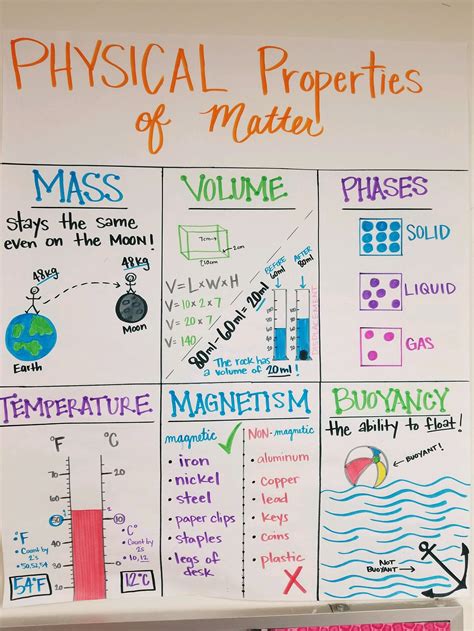 PHYSICAL Properties
of Matter
MASS
stays the same
even on the MOON!
48kg
48kg
Earth
Moon
VOLUME
7cm
2cm
10cm
V=LxWxH
V=10x2x7
V=20x7
V=140
BEFORE
60ml
AFTER
80ml
80ml-60ml=20ml
DISPLACEMENT
The rock has
a volume of 20ml!
PHASES
SOLID
LIQUID
GAS
TEMPERATURE
°F
°C
70
60
50
40
30
20
20
10
0
°F
• Count
by 2's
• 50,52,54
54°F
°C
• Count by
2s
• 10, 12
12°C
MAGNETISM
magnetic
• iron
• nickel
• steel
• paper clips
• staples
• legs of
desk
NON-magnetic
• aluminum
• copper
• lead
• keys
• coins
• plastic
BUOYANCY
the ability to float!
BUOYANT!
NOT
BUOYANT